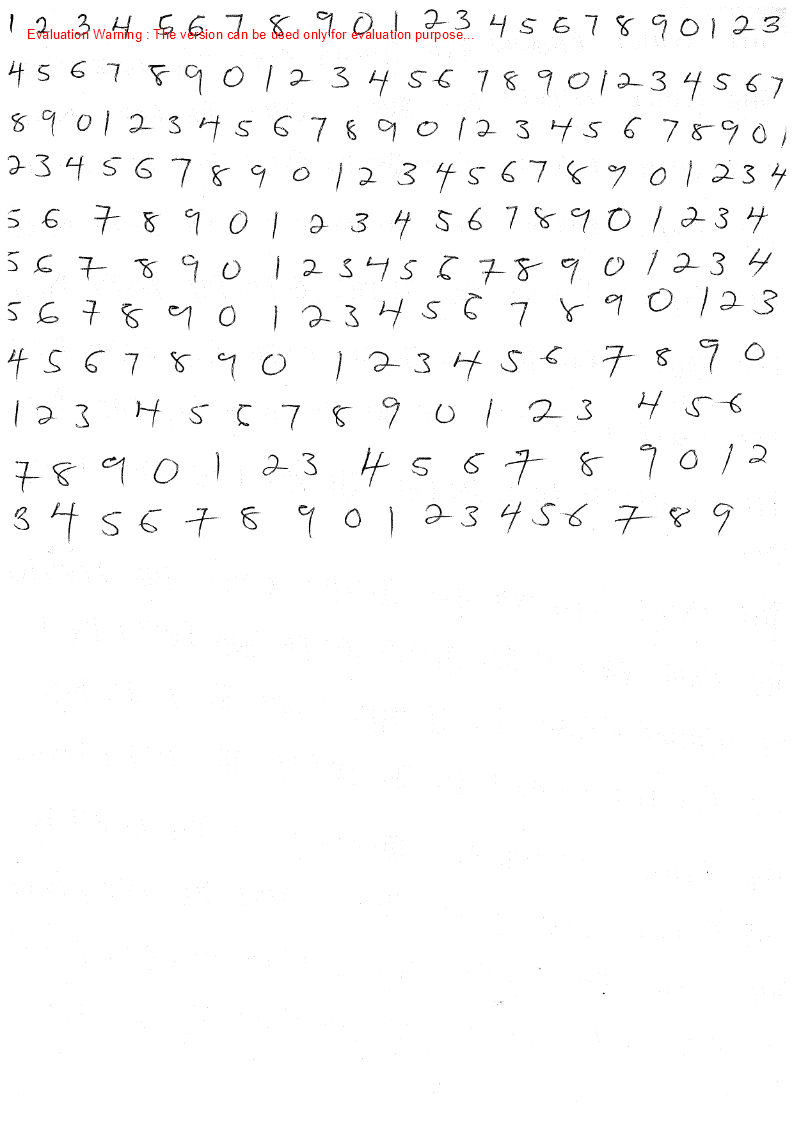 1 2 3 4 5 6 7 8 9 0 1 2 3 4 5 6 7 8 9 0 1 2 3
Evaluation Warning : The version can be used only for evaluation purpose...
4 5 6 7 8 9 0 1 2 3 4 5 6 7 8 9 0 1 2 3 4 5 6 7
8 9 0 1 2 3 4 5 6 7 8 9 0 1 2 3 4 5 6 7 8 9 0 1
2 3 4 5 6 7 8 9 0 1 2 3 4 5 6 7 8 9 0 1 2 3 4
5 6 7 8 9 0 1 2 3 4 5 6 7 8 9 0 1 2 3 4
5 6 7 8 9 0 1 2 3 4 5 6 7 8 9 0 1 2 3 4
5 6 7 8 9 0 1 2 3 4 5 6 7 8 9 0 1 2 3
4 5 6 7 8 9 0 1 2 3 4 5 6 7 8 9 0
1 2 3 4 5 6 7 8 9 0 1 2 3 4 5 6
7 8 9 0 1 2 3 4 5 6 7 8 9 0 1 2
3 4 5 6 7 8 9 0 1 2 3 4 5 6 7 8 9